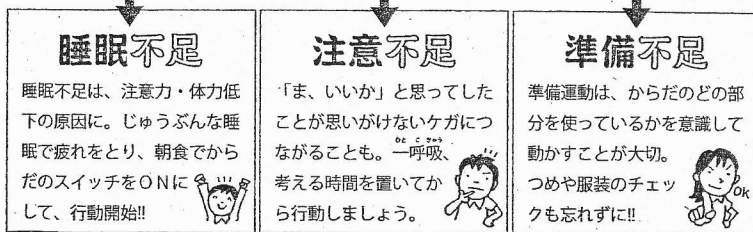 睡眠不足
睡眠不足は、注意力・体力低
下の原因に。じゅうぶんな睡
眠で疲れをとり、朝食でから
だのスイッチをONに
して、行動開始!!
注意不足
「ま、いいか」と思ってした
ことが思いがけないケガにつ
ながることも。一呼吸、
ひと こきゅう
考える時間を置いてか
ら行動しましょう。
準備不足
準備運動は、からだのどの部
分を使っているかを意識して
動かすことが大切。
つめや服装のチェッ
クも忘れずに!!
OK